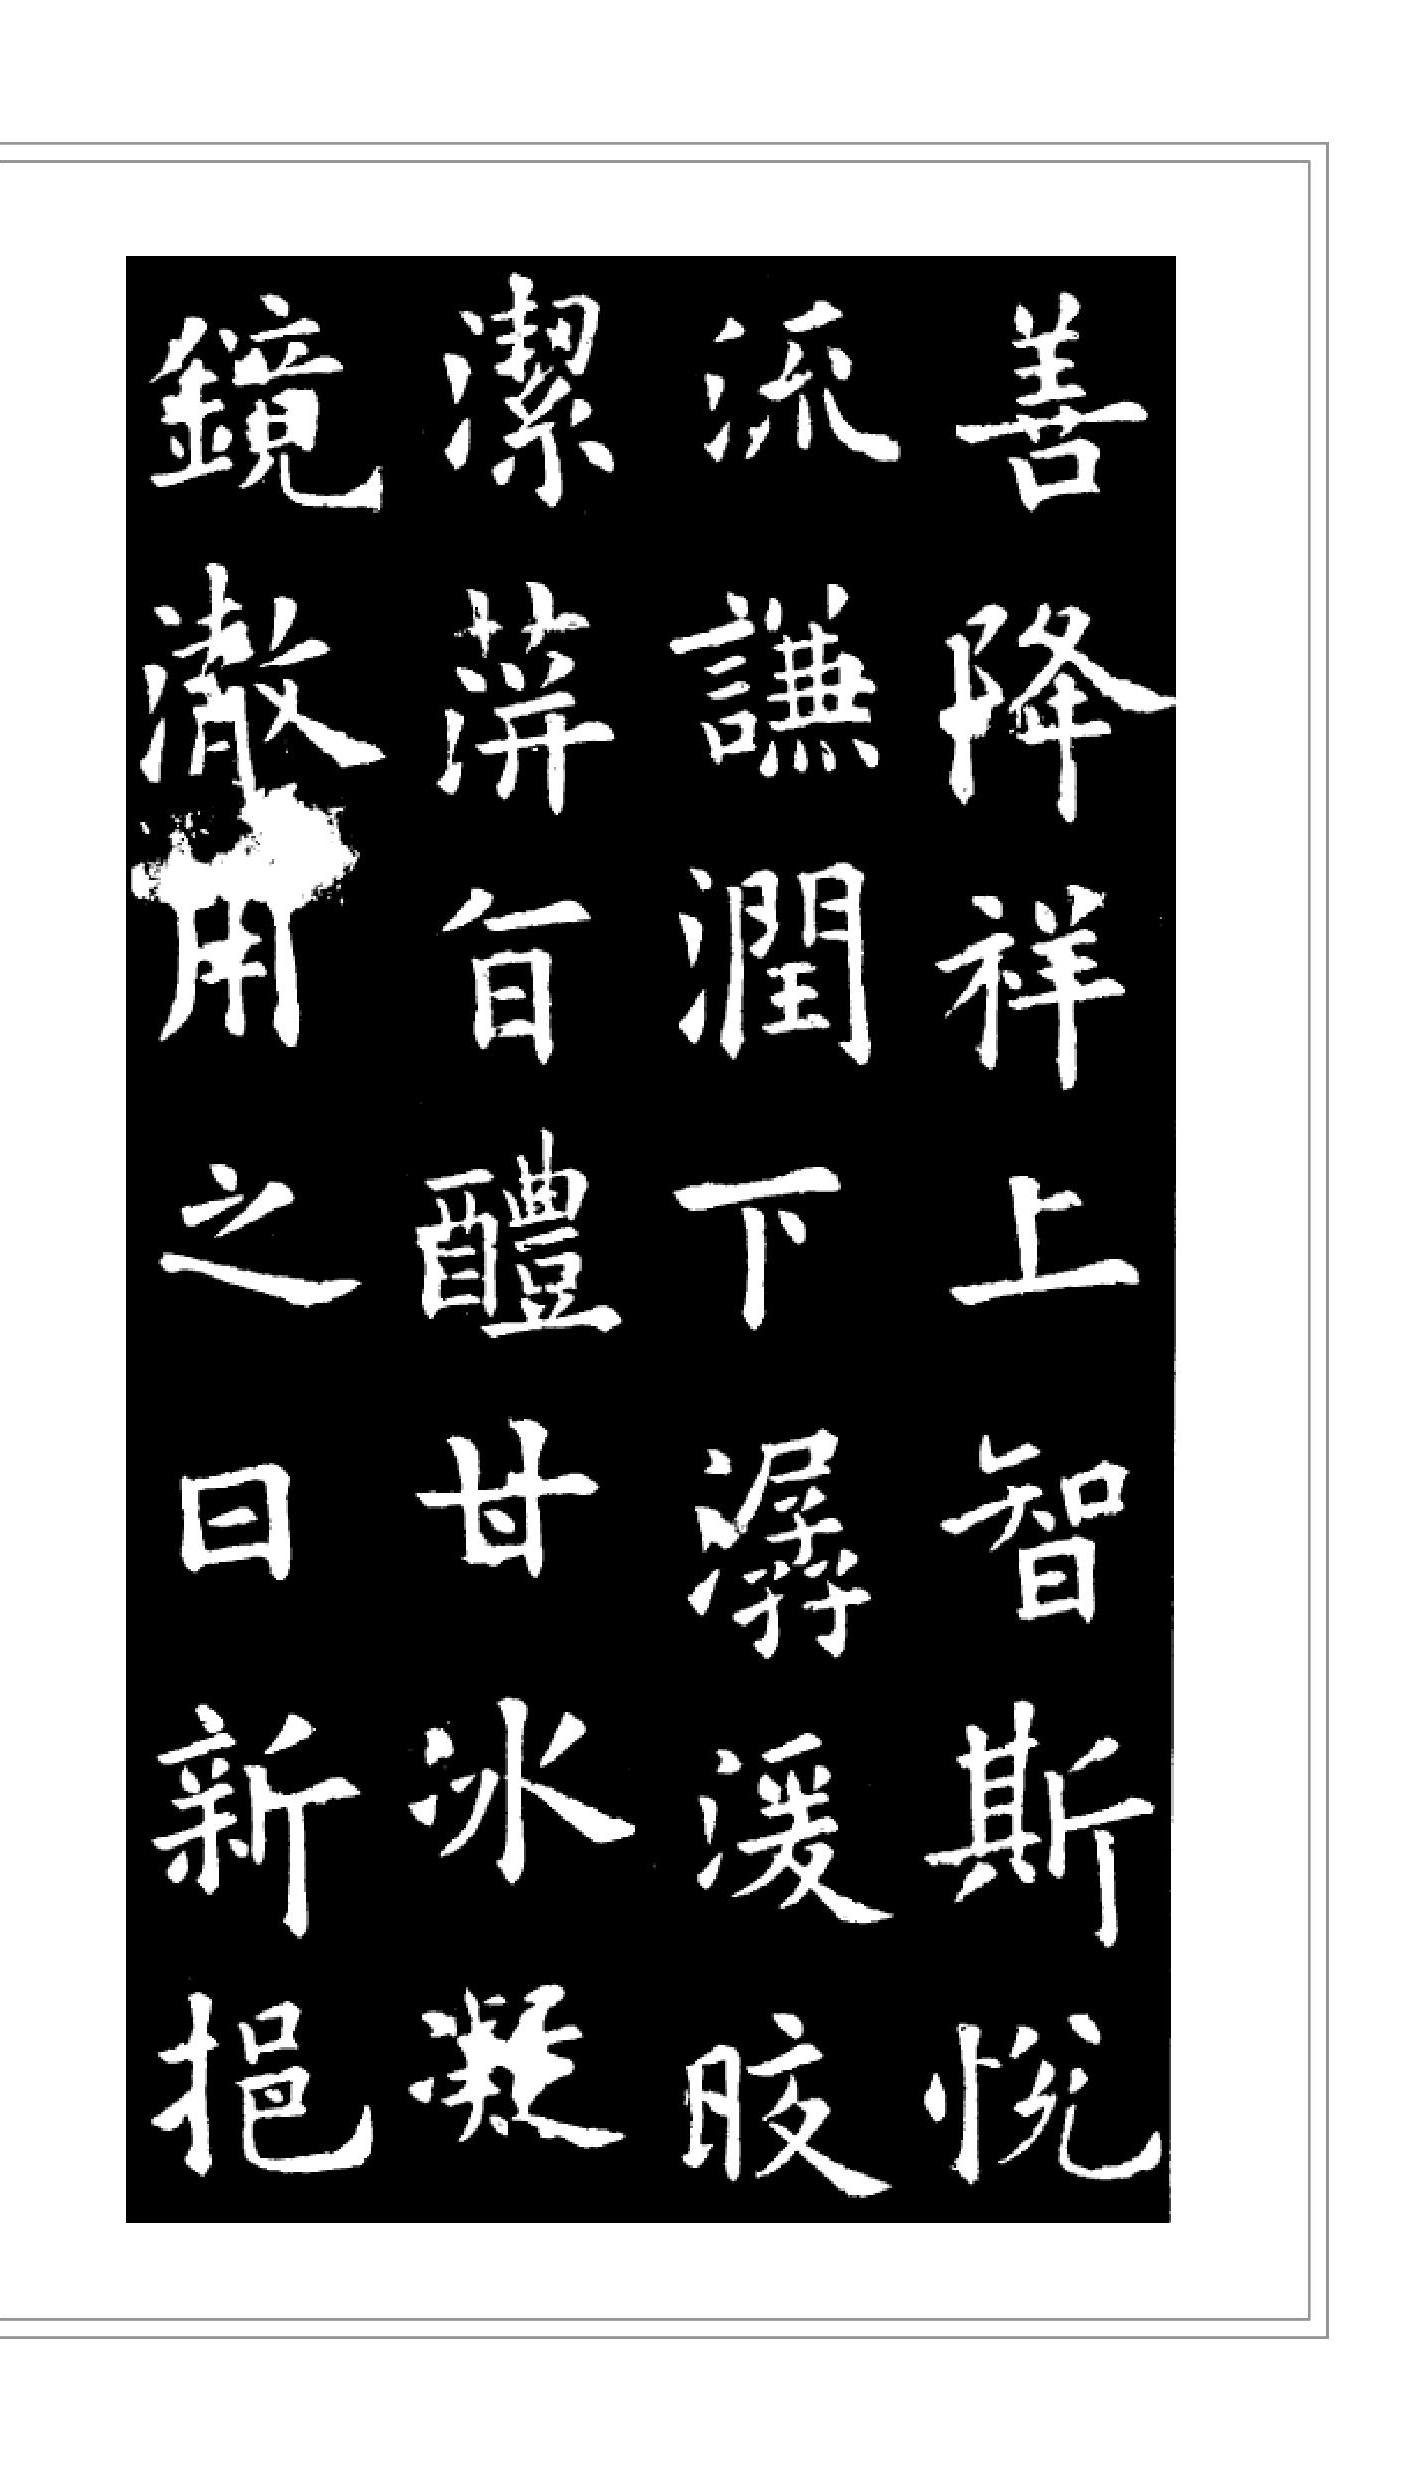 善降祥上智斯悅
流謙潤下潺湲皎
潔蓱旨醴甘冰凝
鏡澈用之日新挹